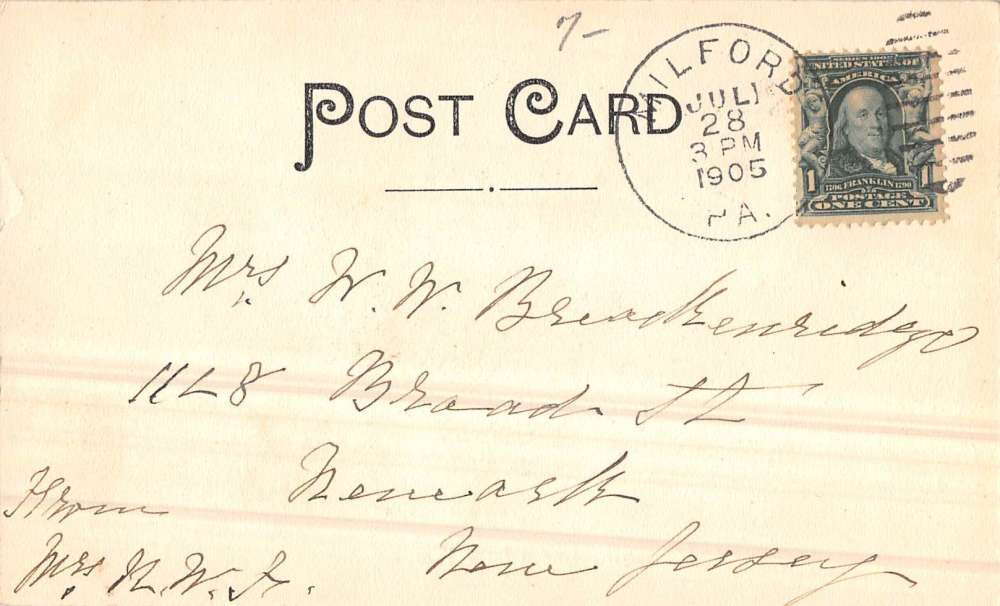 7-
POST CARD
MILFORD
JUL
28
3 PM
1905
PA.
SERIES 1902
UNITED STATES OF
AMERICA
1706 FRANKLIN 1790
1 1
POSTAGE
ONE CENT
Mrs W. W. Breackenridge
Broad St
Newark
New Jersey
From
Mrs